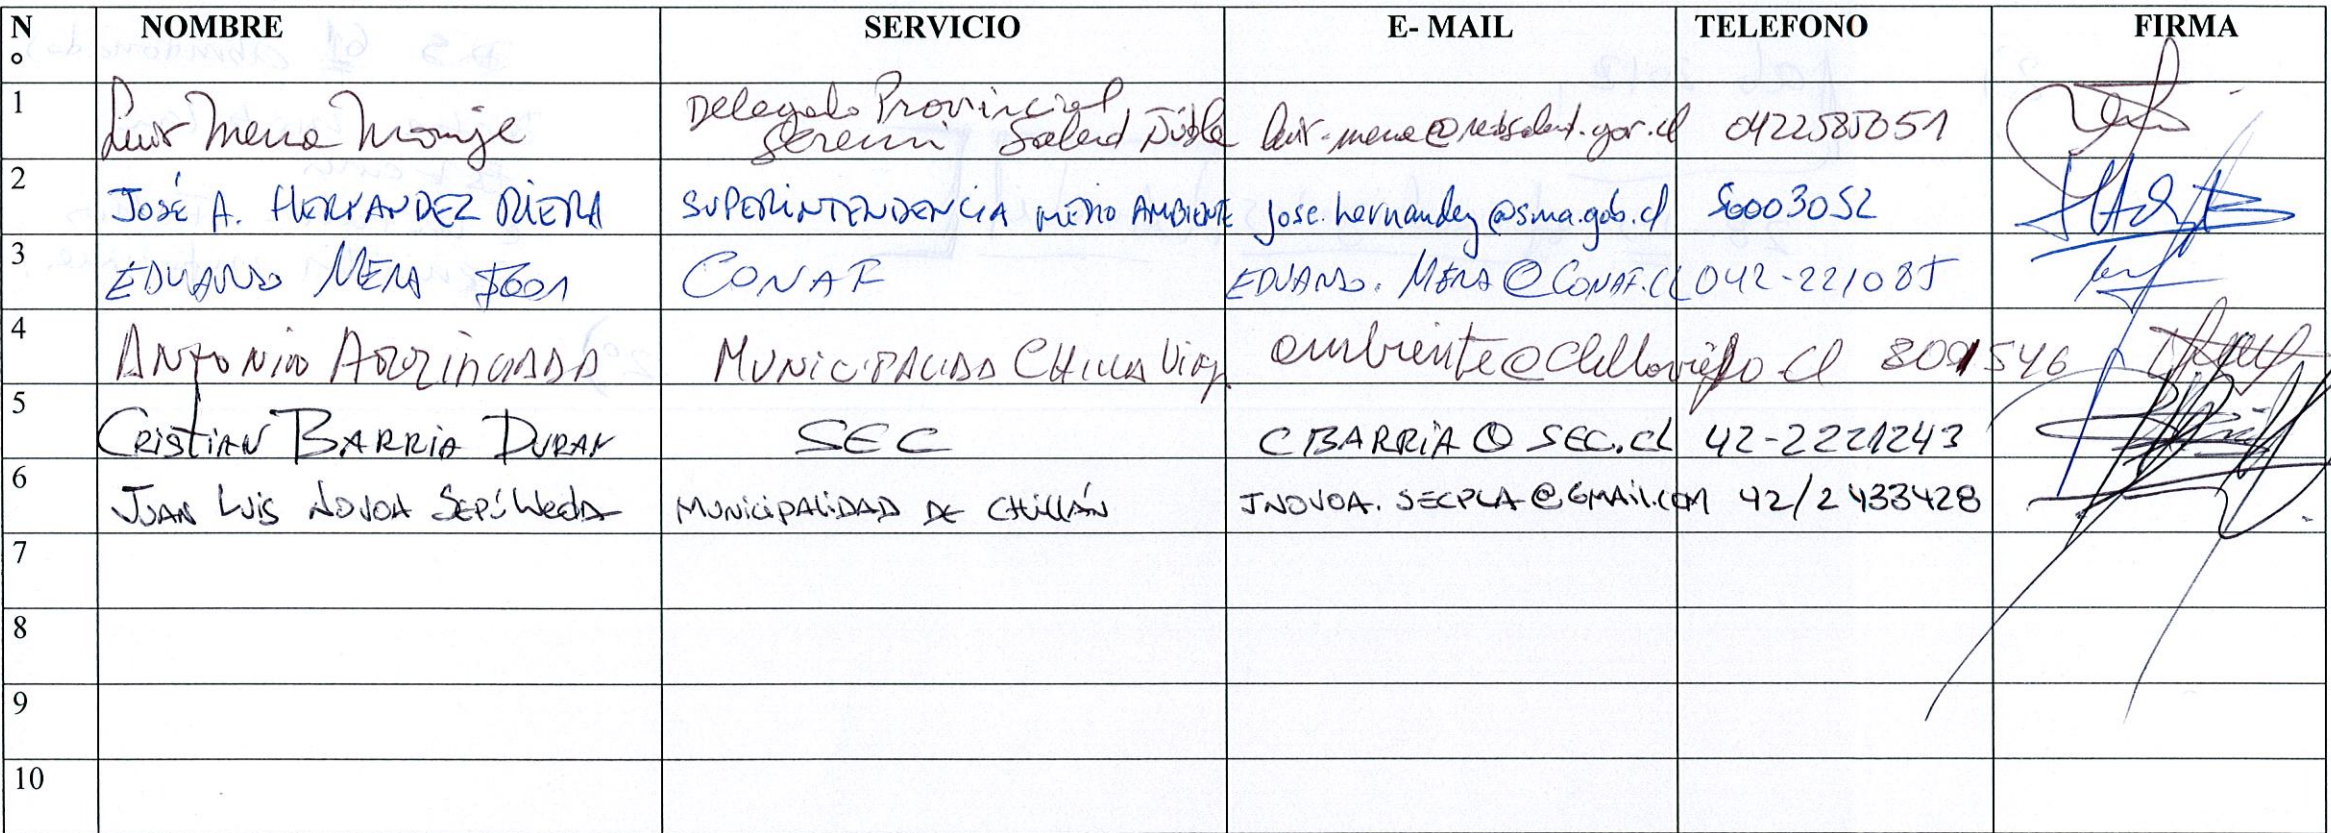 N° NOMBRE SERVICIO E- MAIL TELEFONO FIRMA
1 Luis Mena Monje Delegado Provincial Seremi Salud Ñuble luis.mena@redsalud.gov.cl 0422585051
2 JOSÉ A. HERNANDEZ RIERA SUPERINTENDENCIA MEDIO AMBIENTE jose.hernandez@sma.gob.cl 50003052
3 EDUARDO MENA CONAF EDUARDO.MENA@CONAF.CL 042-221085
4 ANTONIO ARRIAGADA MUNICIPALIDAD CHILLA Viejo ambiente@chillanviejo.cl 801546
5 CRISTIAN BARRIA DURAN SEC CBARRIA@SEC.CL 42-2221243
6 JUAN LUIS NOVOA SEPÚLVEDA MUNICIPALIDAD DE CHILLÁN JNOVOA.SECPLA@GMAIL.COM 42/2433428
7
8
9
10